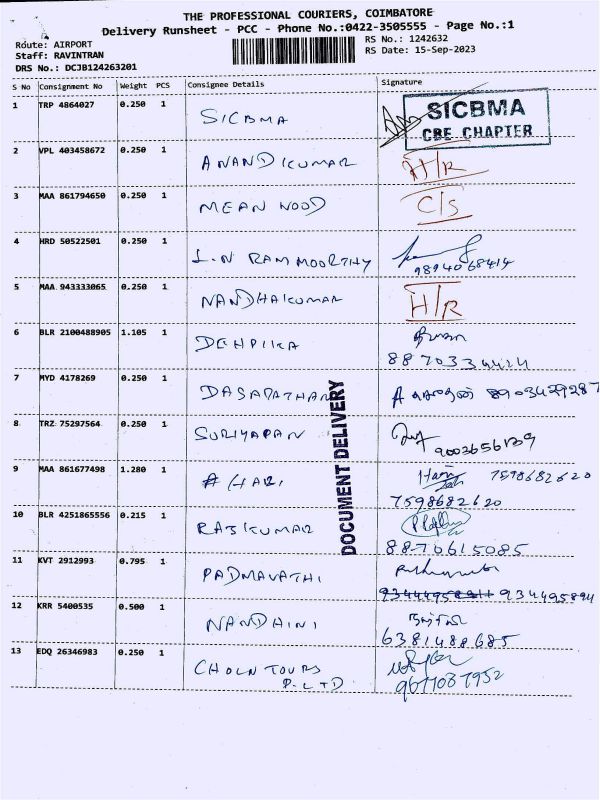 THE PROFESSIONAL COURIERS, COIMBATORE
Delivery Runsheet - PCC - Phone No.:0422-3505555 - Page No.:1
Route: AIRPORT
RS No.: 1242632
Staff: RAVINTRAN
RS Date: 15-Sep-2023
DRS No.: DCJB124263201
S No Consignment No Weight PCS Consignee Details Signature
1 TRP 4864027 0.250 1 SICBMA SICBMA
CBE CHAPTER
2 VPL 403458672 0.250 1 ANANDKUMAR H/R
3 MAA 861794650 0.250 1 MEAN WOOD C/S
4 HRD 50522501 0.250 1 L.N RAMMOORTHY
9894068414
5 MAA 943333065 0.250 1 NANDHAKUMAR H/R
6 BLR 2100488905 1.105 1 DEHPIKA
7 MYD 4178269 0.250 1 DASARATHAN 8903429287
8 TRZ 75297564 0.250 1 SURIYAPAN
9 MAA 861677498 1.280 1 HARI Hari 7598682620
7598682620
10 BLR 4251865556 0.215 1 RAJKUMAR
8870615085
11 KVT 2912993 0.795 1 PADMAVATHI
934495894
12 KRR 5400535 0.500 1 NANDHINI
6381488685
13 EDQ 26346983 0.250 1 CHOLN TOURS
P.LTD 9677087952
DOCUMENT DELIVERY